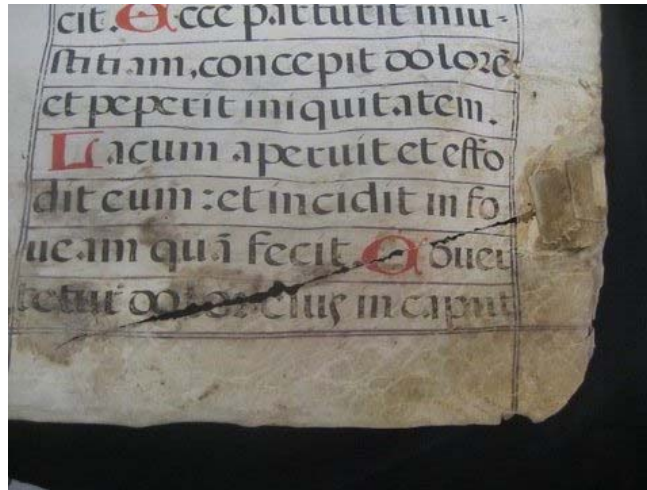 cit. Ecce parturit iniu-
stitiam, concepit dolorē
et peperit iniquitatem.
Lacum aperuit et effo
dit eum: et incidit in fo
ueam quā fecit. Couer
tetur dolor eius in caput